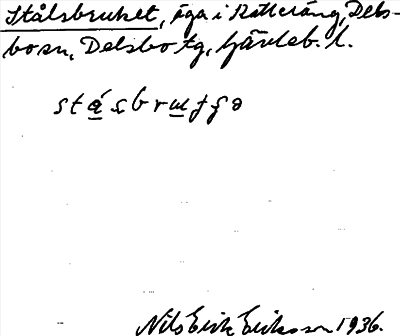 Stålsbruket, äga i Rotteräng, Dels-
bo sn, Delsbo tg, Gävleb. l.
Nils Erik Eriksson 1936.